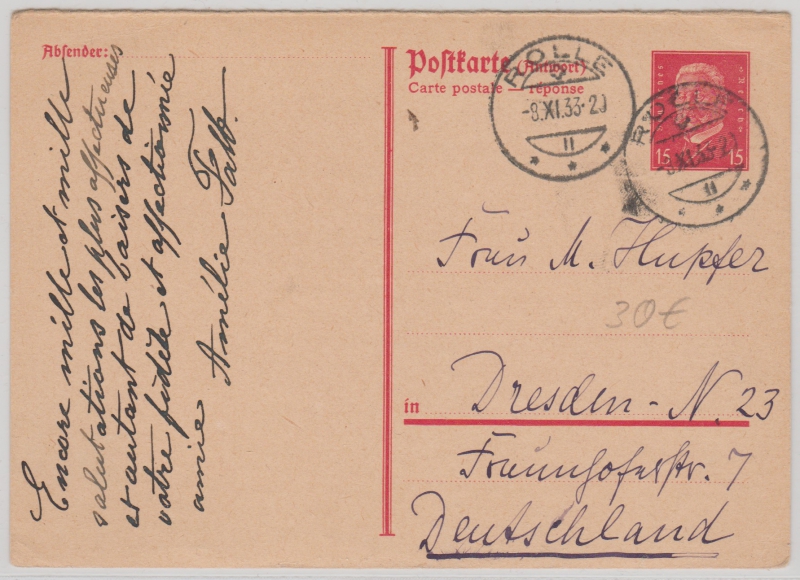 Absender:
Encore mille et mille
salutations les plus affectueuses
et autant de baisers de
votre fidèle et affectionnée
amie Amélie Falk.
Postkarte (Antwort)
Carte postale — réponse
ROLLE
-8.XI.33-20
II
ROLLE
-8.XI.33-20
II
15 15
Frau M. Hupfer
30€
in Dresden-N. 23
Fraunhoferstr. 7
Deutschland